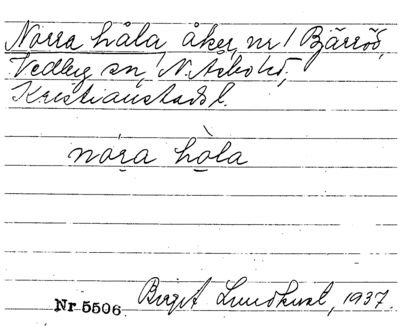 Norra håla, åker, nr 1 Bjärröd,
Vedby sn, N. Åsbo hd,
Kristianstads l.
nó̱ra hò̱la
Nr 5506 Birgit Lundkvist, 1937.